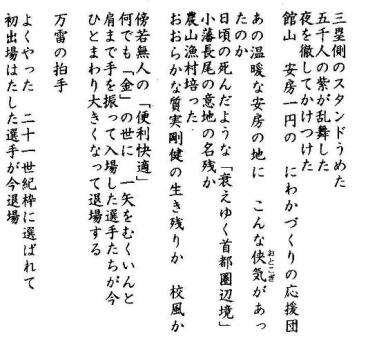 三塁側のスタンドうめた
五千人の紫が乱舞した
夜を徹してかけつけた
館山 安房一円の にわかづくりの応援団
あの温暖な安房の地に こんな侠気があっ
おとこぎ
たのか
日頃の死んだような「衰えゆく首都圏辺境」
小藩長尾の意地の名残か
農山漁村培った
おおらかな質実剛健の生き残りか 校風か
傍若無人の「便利快適」
何でも「金」の世に 一矢をむくいんと
肩まで手を振って入場した選手たちが今
ひとまわり大きくなって退場する
万雷の拍手
よくやった 二十一世紀枠に選ばれて
初出場はたした選手が今退場